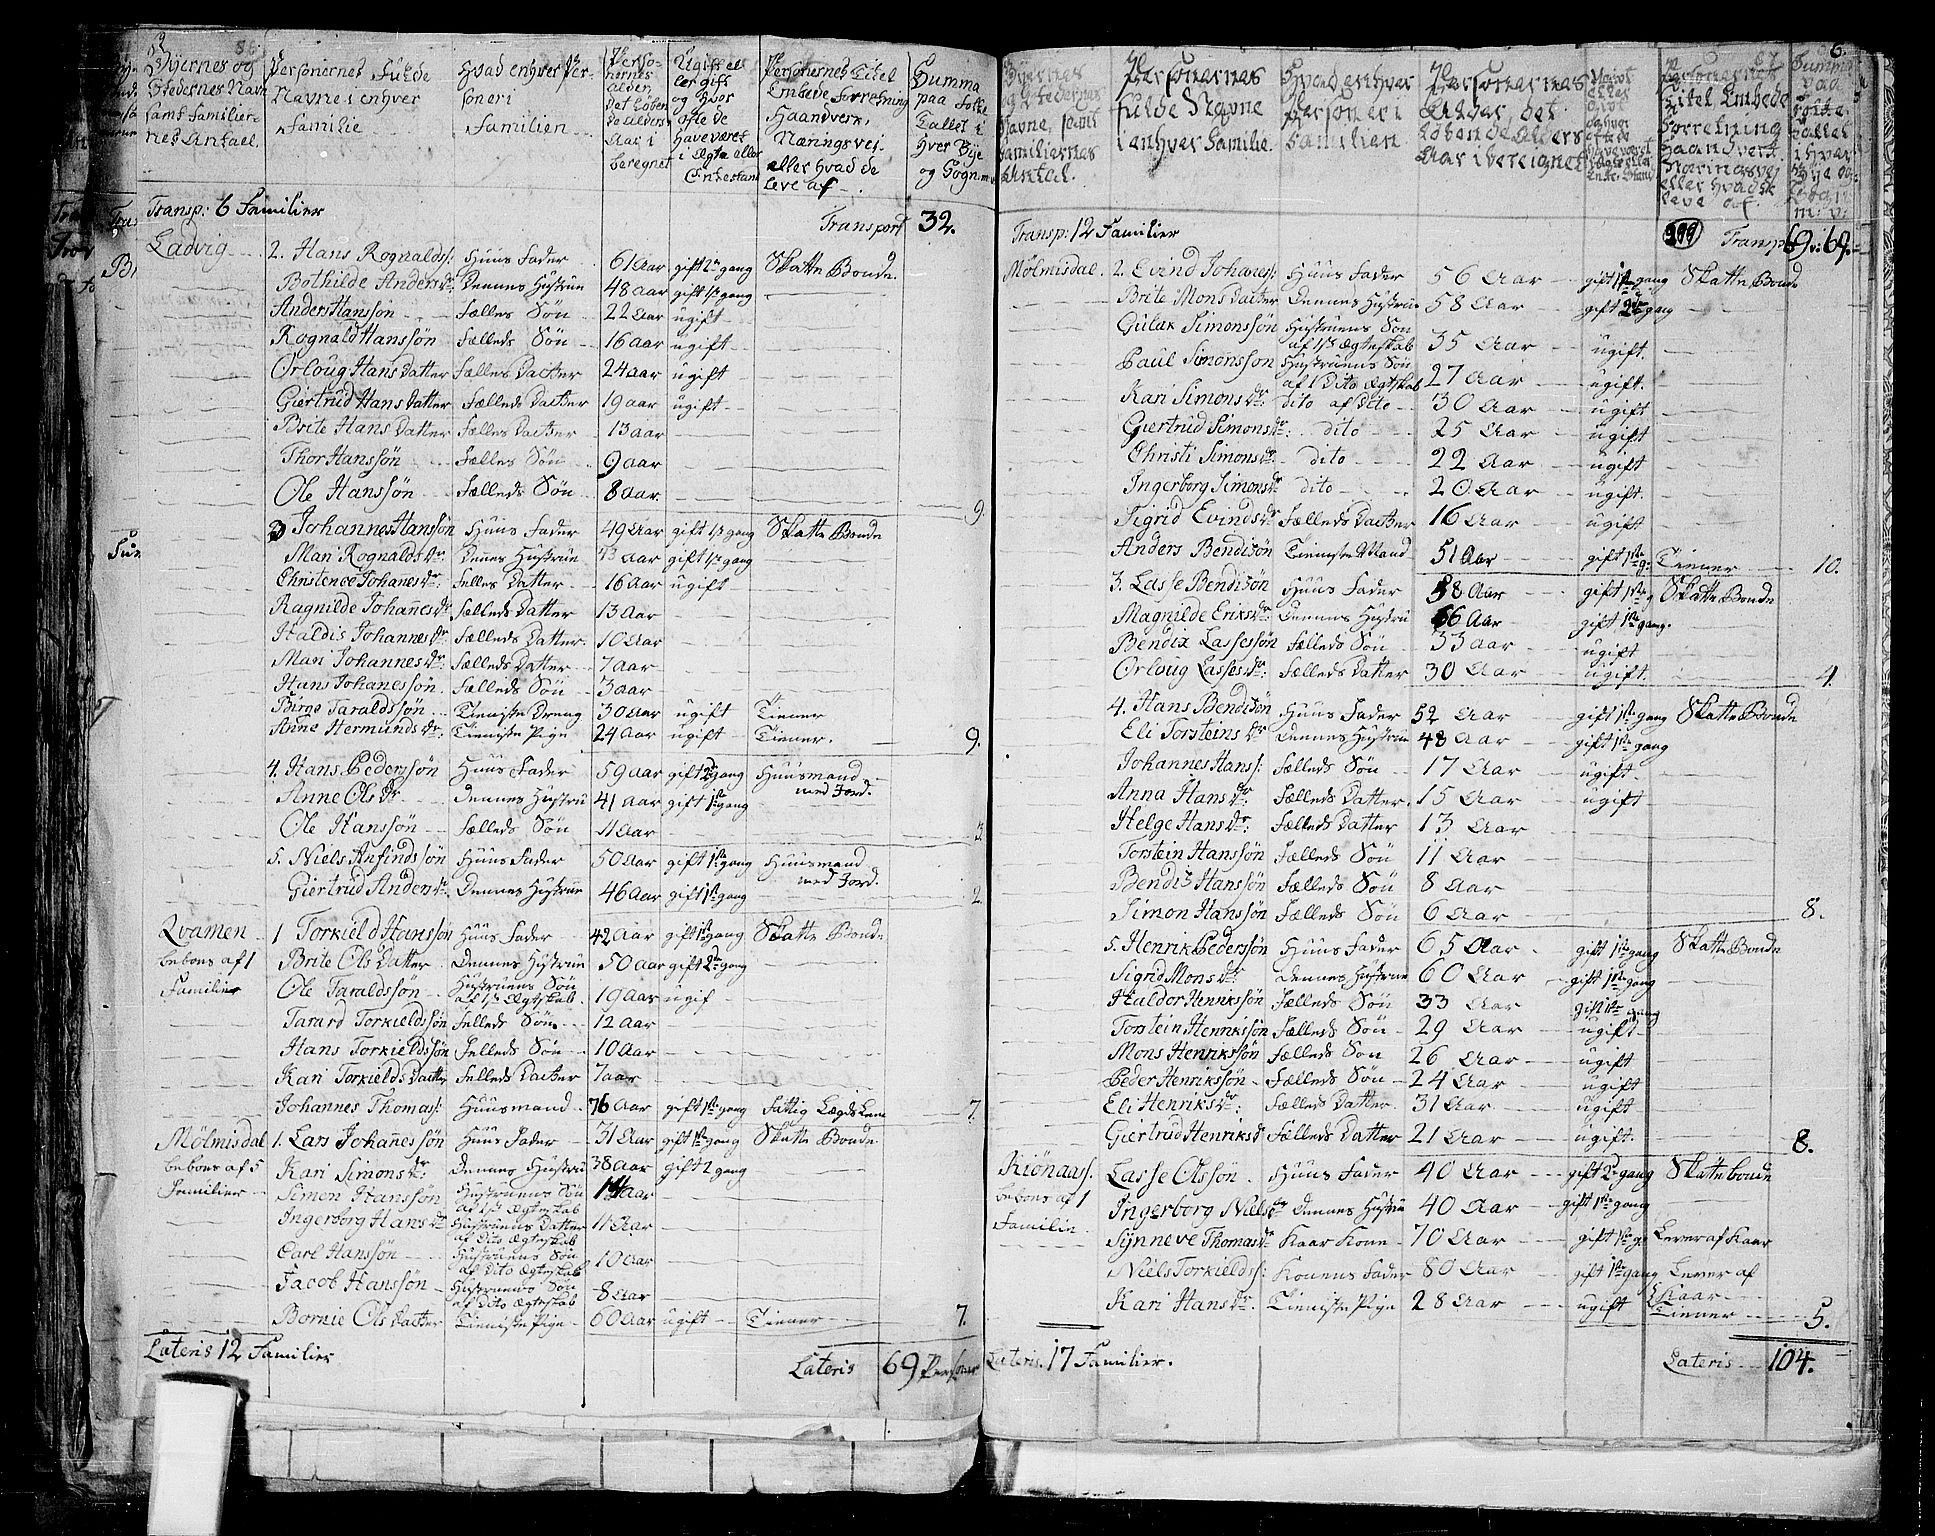 Byernes og
Stedernes Navn
samt Familier-
nes Antael.
Personernes Fulde
Navne i enhver
Familie
Hvad enhver Per-
son er i
Familien
Perso-
nernes
alder
det Løben-
de alders
Aar i-
beregnet
Ugift el-
ler gift
og hvor
ofte de
have været
i Ægte eller
Enkestand
Personernes Titel
Embede Forretning
Haandverk,
Næringsvei
eller hvad de
leve af
Summa
paa Folke
Tallet i
hver Bye
og Sogn
Transp: 6 Familier Transport 32.
Ladvig 2. Hans Rognalds: Huus Fader 61 Aar gift 2n gang Skatte Bonde.
Bothilde Andersdr: Dennes Hustrue 48 aar gift 1st gang
Anders Hansson Fælles Søn 22 Aar ugift
Rognald Hanssøn Fælleds Søn 16 aar ugift
Orloug Hans Datter Fælles Datter 24 aar ugift
Giertrud Hans Datter Fælleds Datter 19 aar ugift
Brite Hans Datter Fælles Datter 13 aar
Thor Hanssøn Fælles Søn 9 aar
Ole Hanssøn Fælleds Søn 8 aar 9.
3 Johannes Hanssøn Huus Fader 49 Aar gift 1st gang Skatte Bonde
Mari Rognalds dr Denes Hustrue 43 aar gift 1st gang
Christence Johanes dr: Felles Datter 16 aar ugift
Ragnilde Johañes dr Felleds Datter 13 aar
Haldis Johannes dr: Fælleds Datter 10 aar
Mari Johannes dr: Fælleds Datter 7 aar
Hans Johanessøn. Fælleds Søn 3 aar
Birge Taraldssøn Tieniste Dreng 30 aar ugift Tiener
Anne Hermunds dr: Tieniste Pige 24 aar ugift Tiener. 9.
4. Hans Pederssøn Huus Fader 59 aar gift 2de gang Huusmand
Anne Ols dr Dennes Hustru 41 aar gift 1ste gang med Jord.
Ole Hanssøn Fælleds Søn 11 Aar 3.
5. Niels Anfindssøn Huus Fader 50 aar gift 1ste gang Huusmand
Giertrud Anders dr: Dennes Hustrue 46 aar gift 1ste gang med Jord. 2.
Qvamen 1 Torkield Hanssøn Huus Fader 42 aar gift 1st gang Skatte Bonde
bebons af 1 Brite Ols Datter Dennes Hustrue 50 aar gift 2de gang
Familier Ole Taraldssøn Hustruens Søn
af 1st Ægteskab. 19 aar ugif
Tarard Torkieldssøn Felleds Søn 12 aar
Hans Torkieldssøn Felleds Søn 10 Aar
Kari Torkields Datter Felleds Datter 7 aar
Johannes Thomas: Huusmand 76 aar gift 1ste gang Fattig Lægds Lem 7.
Mølmisdal 1. Lars Johañessøn Huus Fader 31 Aar gift 1ste gang Skatte Bonde
bebons af 5 Kari Simons dr: Dennes Hustru 38 aar gift 2 gang
Familier Simen Hanssøn Hustruens Søn
af 1st Ægteskab 14 aar
Ingerborg Hans dr Hustruens Datter
af Dito Ægteskab 11 aar
Carl Hanssøn Hustruens Søn
af Dito Ægteskab 10 aar
Jacob Hanssøn Hustruens Søn
af Dito Ægteskab 8 aar
Bornie Ols Datter Tieniste Pige 60 aar ugift Tiener 7.
Lateris 12 Familier Lateris 69 Personer
Personernes
fulde Navne
i enhver Familie.
Hvad enhver
Person er i
Familien
Personernes
Alder, det
Løbende Alders
Aar iberegnet
Personernes
Titel Embede
Forretning
Haandverk
Næringsvei
eller hvad de
leve af.
Transp: 12 Familier Transp 69.
Mølmisdal. 2. Evind Johanes: Huus Fader 56 Aar gift 1ste gang Skatte Bonde
Brite Mons Datter Dennes Hustrue 58 Aar gift 2de gang
Gulak Simonssøn Hustruens Søn
af 1st Ægteskab 35 Aar ugift.
Paul Simonssøn Hustruens Søn
af Dito Ægtskab 27 Aar ugift.
Kari Simons dr: Dito af Dito 30 Aar ugift
Giertrud Simons dr: dito 25 Aar ugift
Christi Simons dr dito 22 Aar ugift
Ingerborg Simons dr dito 20 Aar ugift.
Sigrid Evinds dr Fælleds Datter 16 Aar ugift
Anders Bendisøn Tieniste Mand 51 Aar gift 1ste g: Tiener 10.
3. Lasse Bendisøn Huus Fader 58 Aar gift 1ste g Skatte Bonde
Magnilde Eriks dr: Dennes Hustru 66 Aar gift 1ste gang.
Bendix Lassessøn Fælleds Søn 33 aar ugift
Orloug Lasses dr: Fælleds Datter 30 Aar ugift. 4.
4. Hans Bendisøn Huus Fader 52 Aar gift 1ste gang Skatte Bonde
Eli Torsteins dr Dennes Hustrue 48 Aar gift 1ste gang
Johannes Hans: Fælleds Søn 17 Aar ugift
Anna Hans dr: Fælleds Datter. 15 Aar ugift
Helge Hans dr: Fælleds Datter 13 Aar
Torstein Hanssøn Fælleds Søn 11 Aar
Bendis Hanssøn Fælleds Søn 8 Aar
Simon Hanssøn Fælleds Søn 6 Aar 8.
5. Henrik Pederssøn Huus Fader 65 Aar. gift 1ste gang Skatte Bonde
Sigrid Mons dr Dennes Hustrue 60 Aar gift 1ste gang
Haldor Henrikssøn Fælleds Søn 33 Aar gift 1ste gang
Torstein Henrikssøn Fælleds Søn 29 Aar ugift
Mons Henrikssøn Fælleds Søn 26 Aar ugift
Peder Henrikssøn Fælleds Søn 24 Aar ugift
Eli Henriks dr: Fælleds Datter. 31 Aar ugift
Giertrud Henriks dr Fælleds Datter 21 Aar ugift. 8.
Kiönaass. Lasse Olssøn Huus Fader 40 Aar gift 2de gang Skatte bonde
bebons af 1 Ingerborg Niels dr Dennes Hustru 40 Aar gift 1ste gang
Familie Synneve Thomas dr Kaar Kone 70 Aar gift 1ste g Lever af Kaar
Niels Torkields: Konens Fader 80 Aar gift 1ste gang Lever af
Kaar
Kari Hans dr: Tieniste Pige 28 Aar ugift Tiener 5.
Lateris. 17 Familier. Lateris 104.